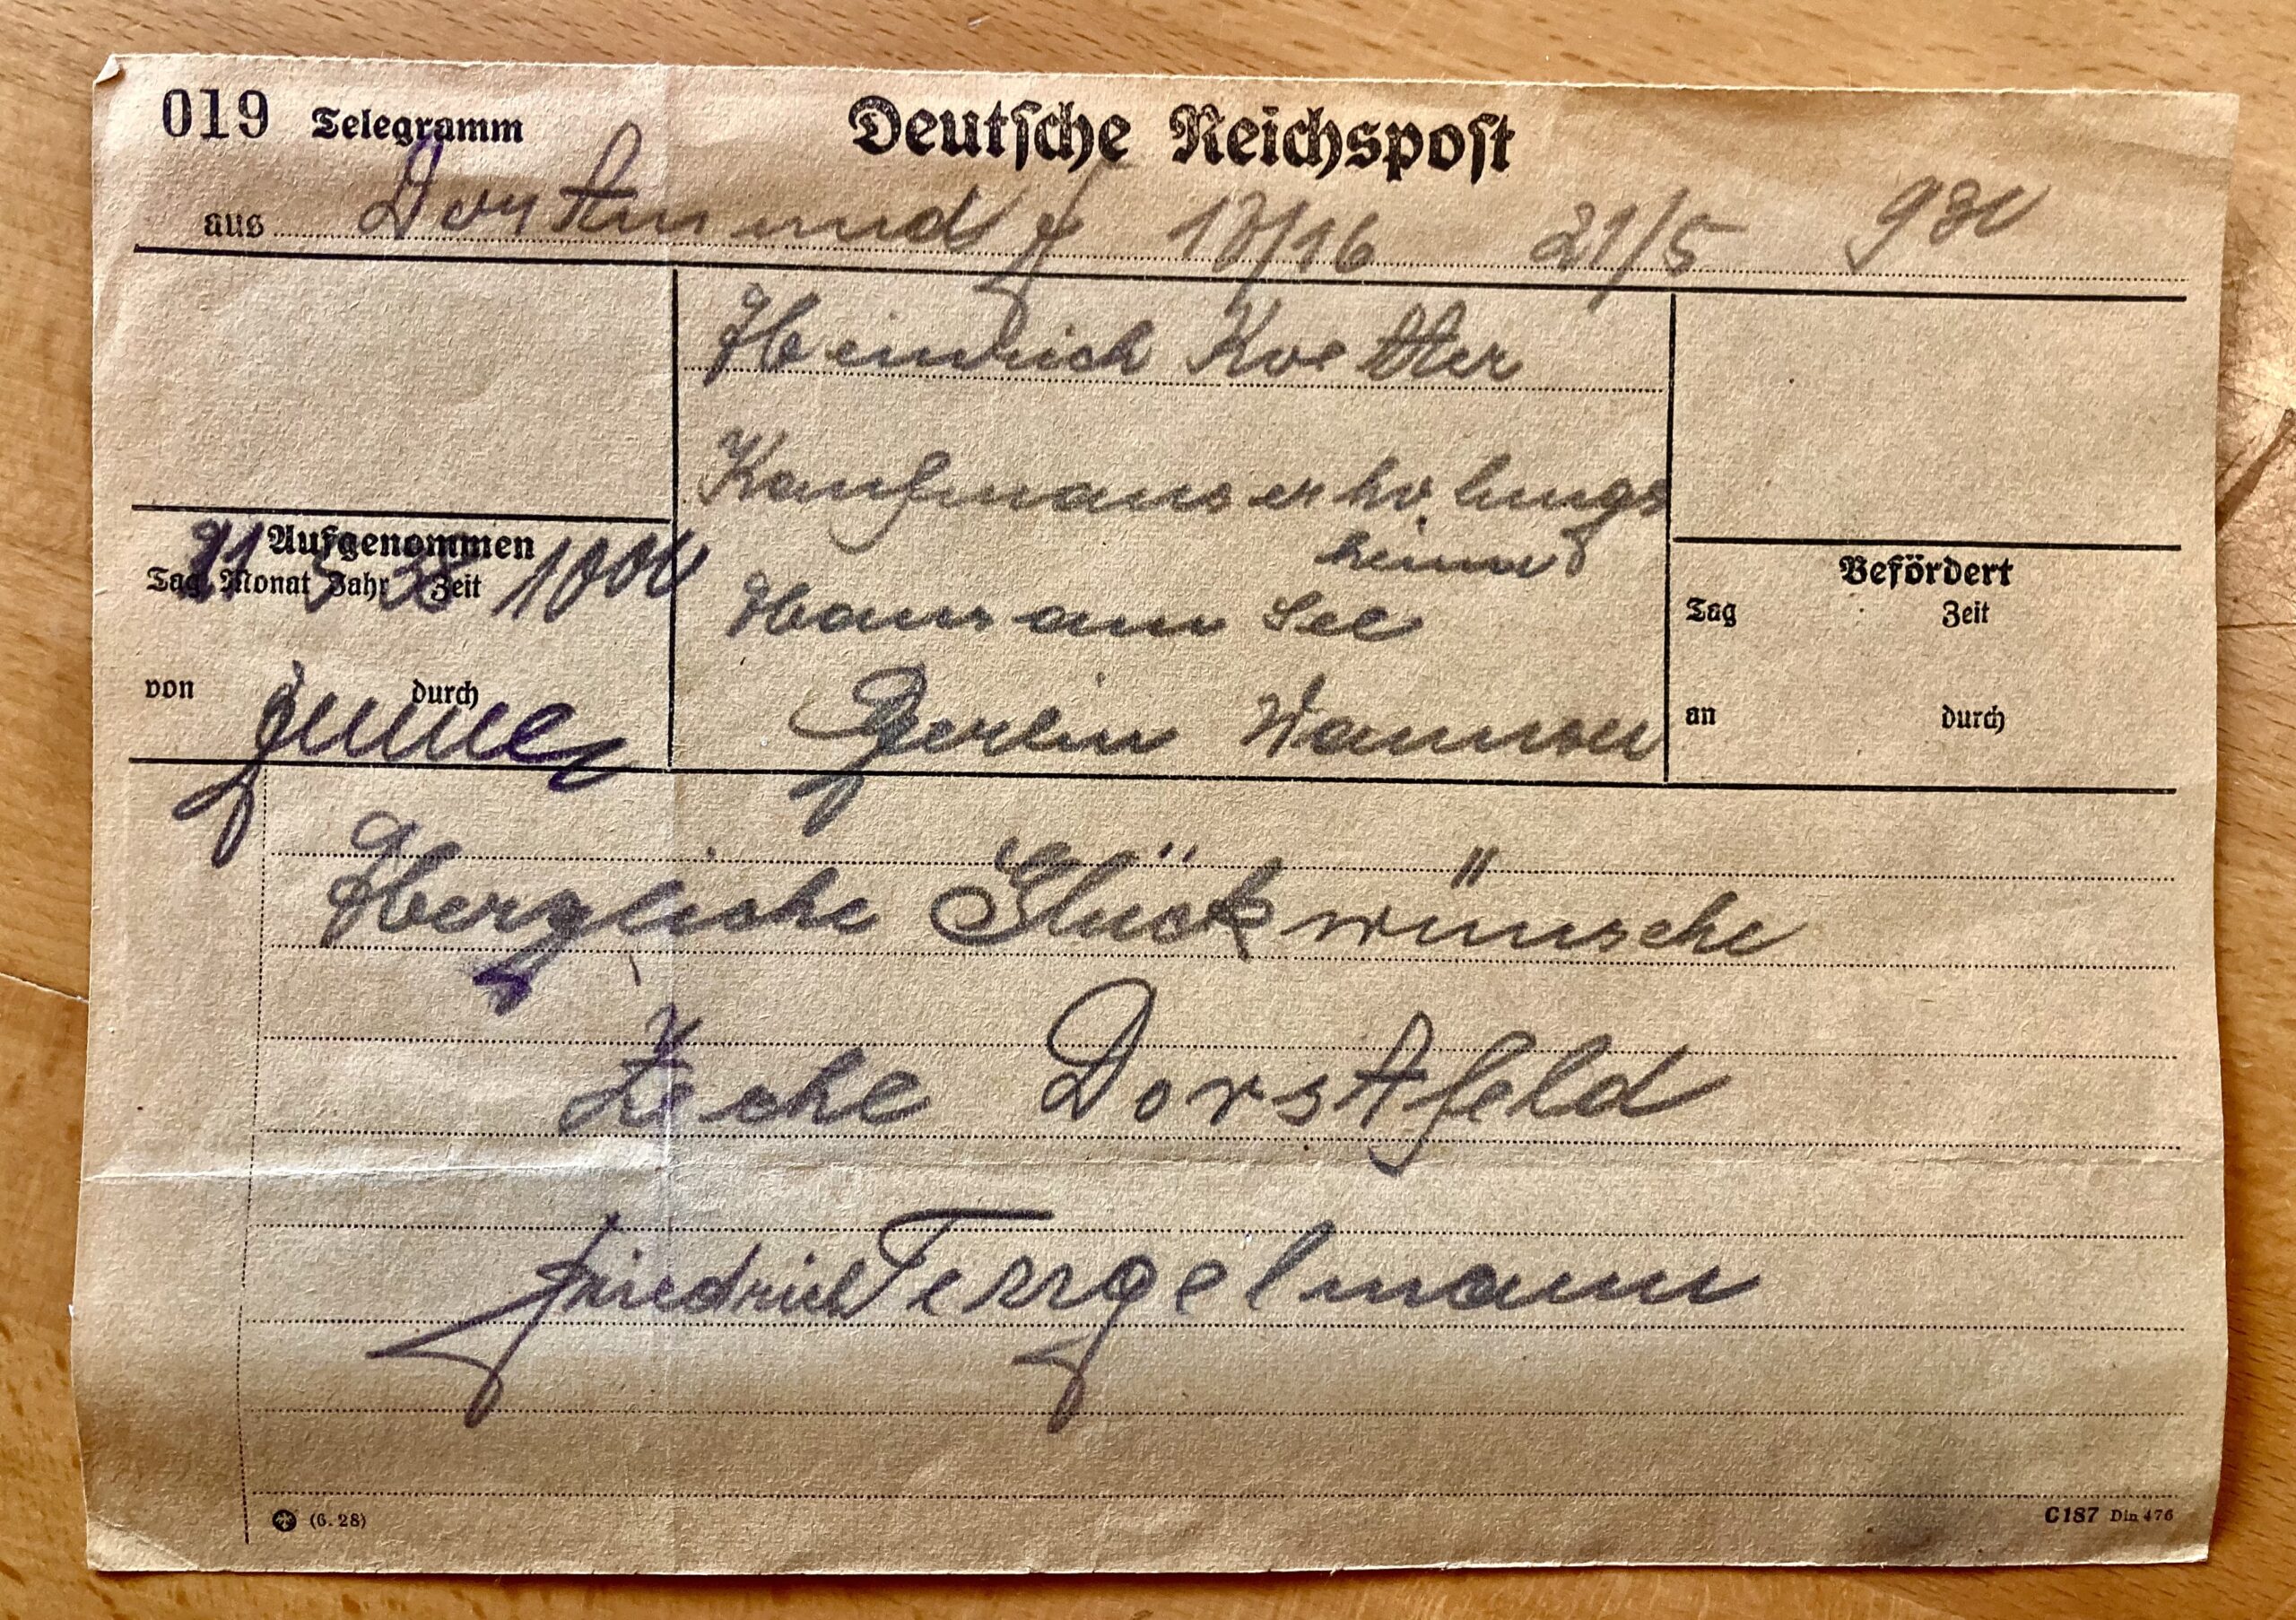 019 Telegramm Deutsche Reichspost
aus Dortmund f 17/16 21/5 930
Heinrich Koetter
Kaufmannserholungs
heim
Haus am See
Berlin Wannsee
Aufgenommen
Tag Monat Jahr Zeit
21 5 38 1000
von durch
Befördert
Tag Zeit
an durch
Herzliche Glückwünsche
Zeche Dorstfeld
Friedrich Tengelmann
(6. 28) C187 Din 476